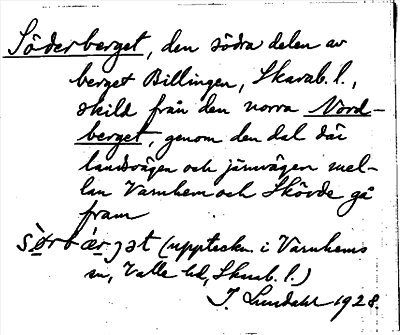 Söderberget, den södra delen av
berget Billingen, Skarab. l.,
skild från den norra Nord-
berget, genom den dal där
landsvägen och järnvägen mel-
lan Varnhem och Skövde gå
fram
(uppteckn. i Varnhems
sn, Valle hd, Skarab. l.)
J. Lundahl 1928.